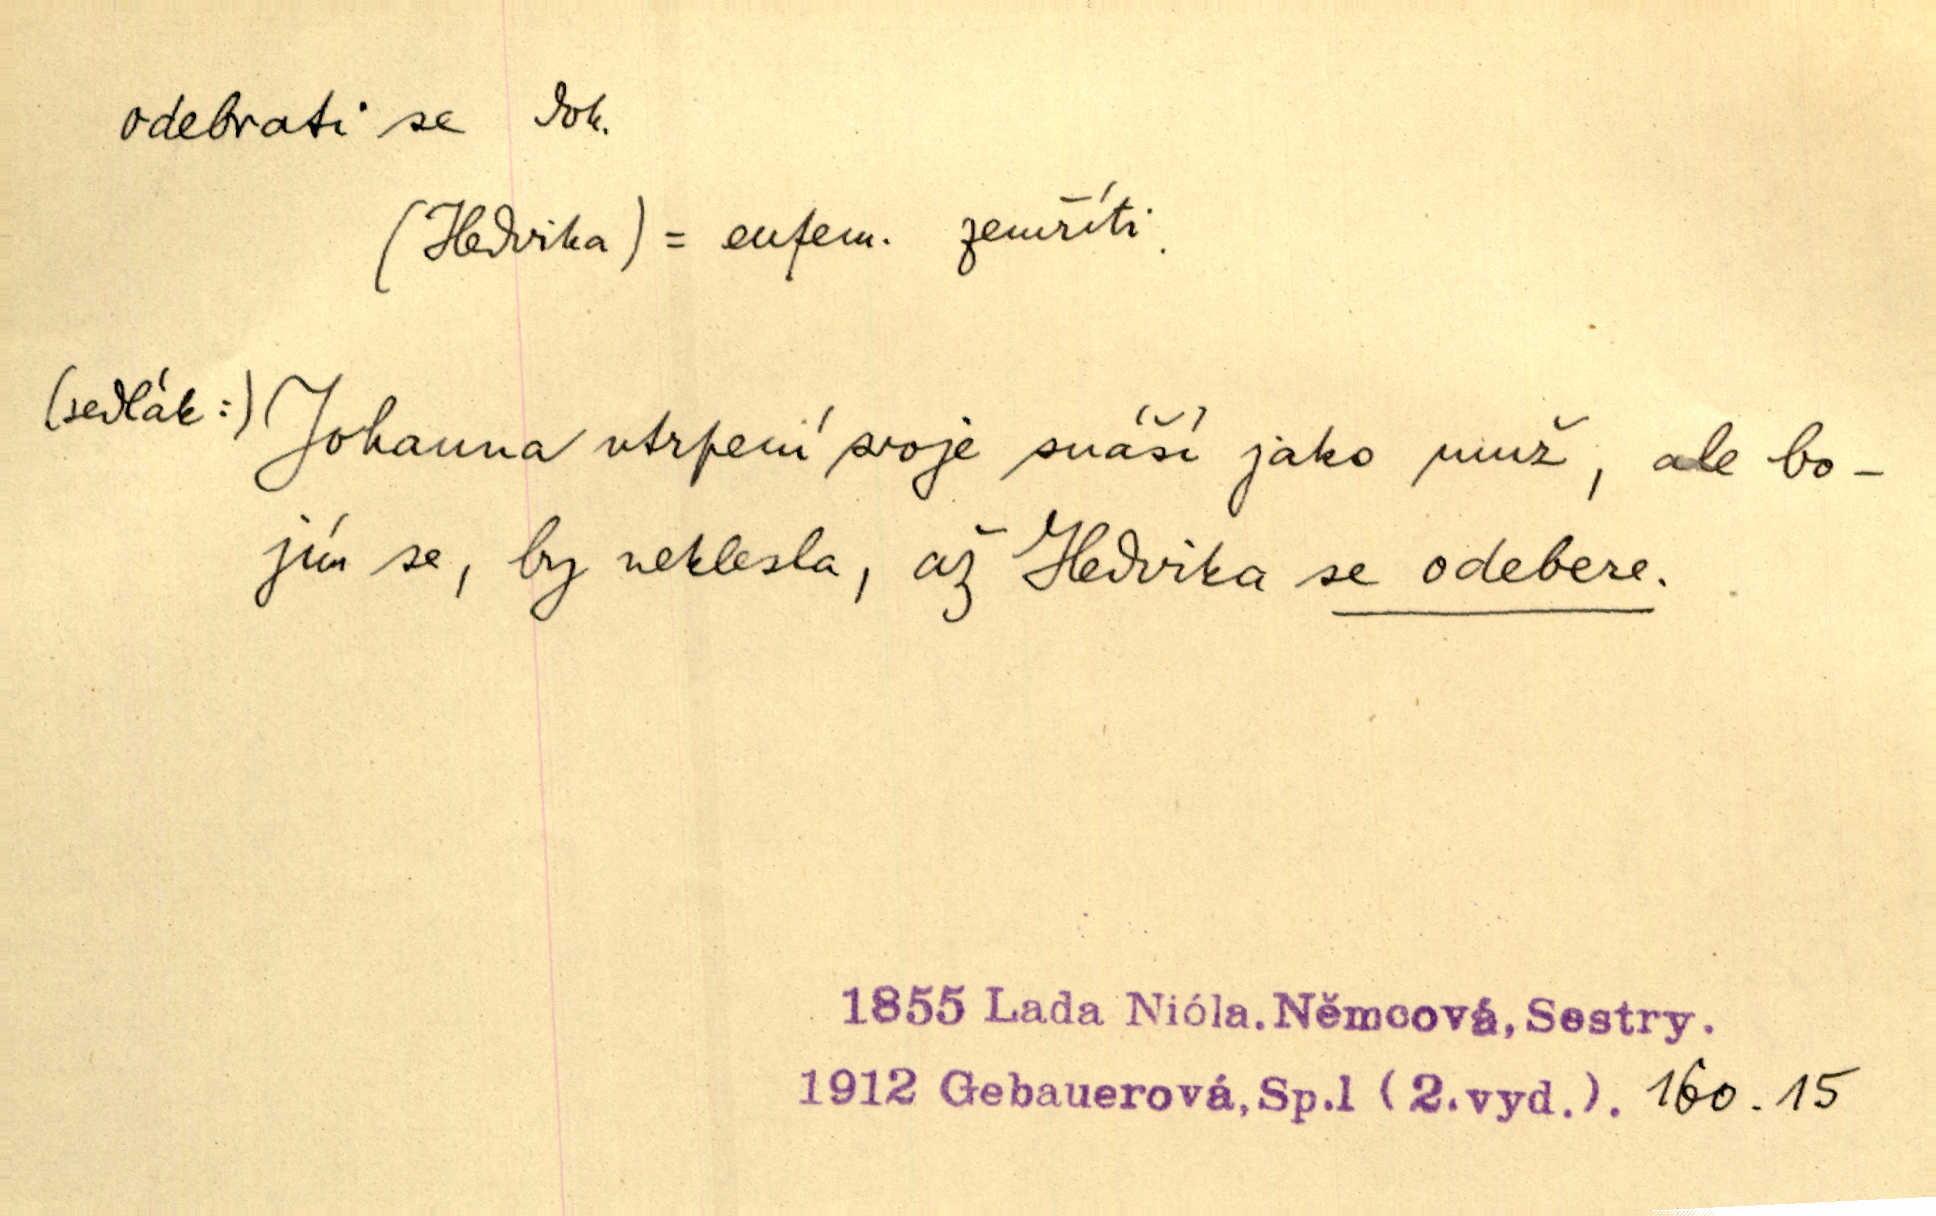 odebrati se dok.
(Hedvika) = eufem. zemříti.
(sedlák:) Johanna utrpení svoje snáší jako muž, ale bo-
jím se, by neklesla, až Hedvika se odebere.
1855 Lada Nióla. Němcová, Sestry.
1912 Gebauerová, Sp.1 (2.vyd.). 160. 15